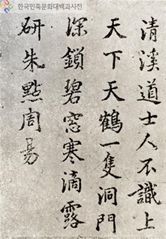 한국민족문화대백과사전
清溪道士人不識上
天下天鶴一隻洞門
深鎖碧窓寒滴露
研朱點周易